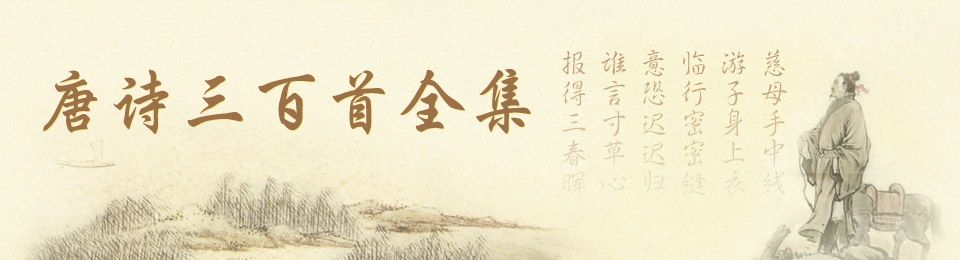 唐诗三百首全集
慈母手中线
游子身上衣
临行密密缝
意恐迟迟归
谁言寸草心
报得三春晖